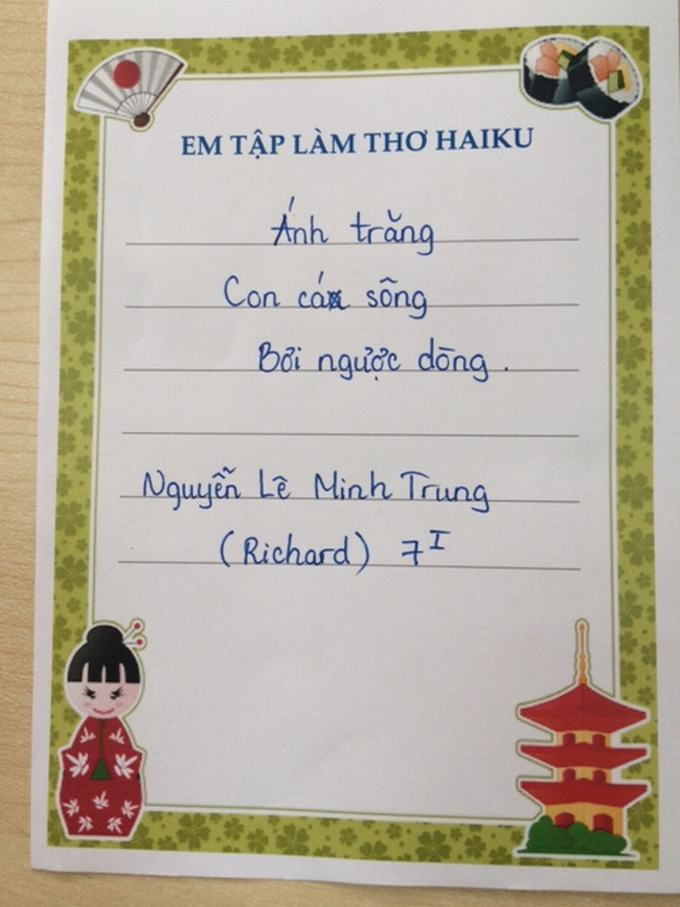 EM TẬP LÀM THƠ HAIKU
Ánh trăng
Con cá sông
Bơi ngược dòng.
Nguyễn Lê Minh Trung
(Richard) 7I